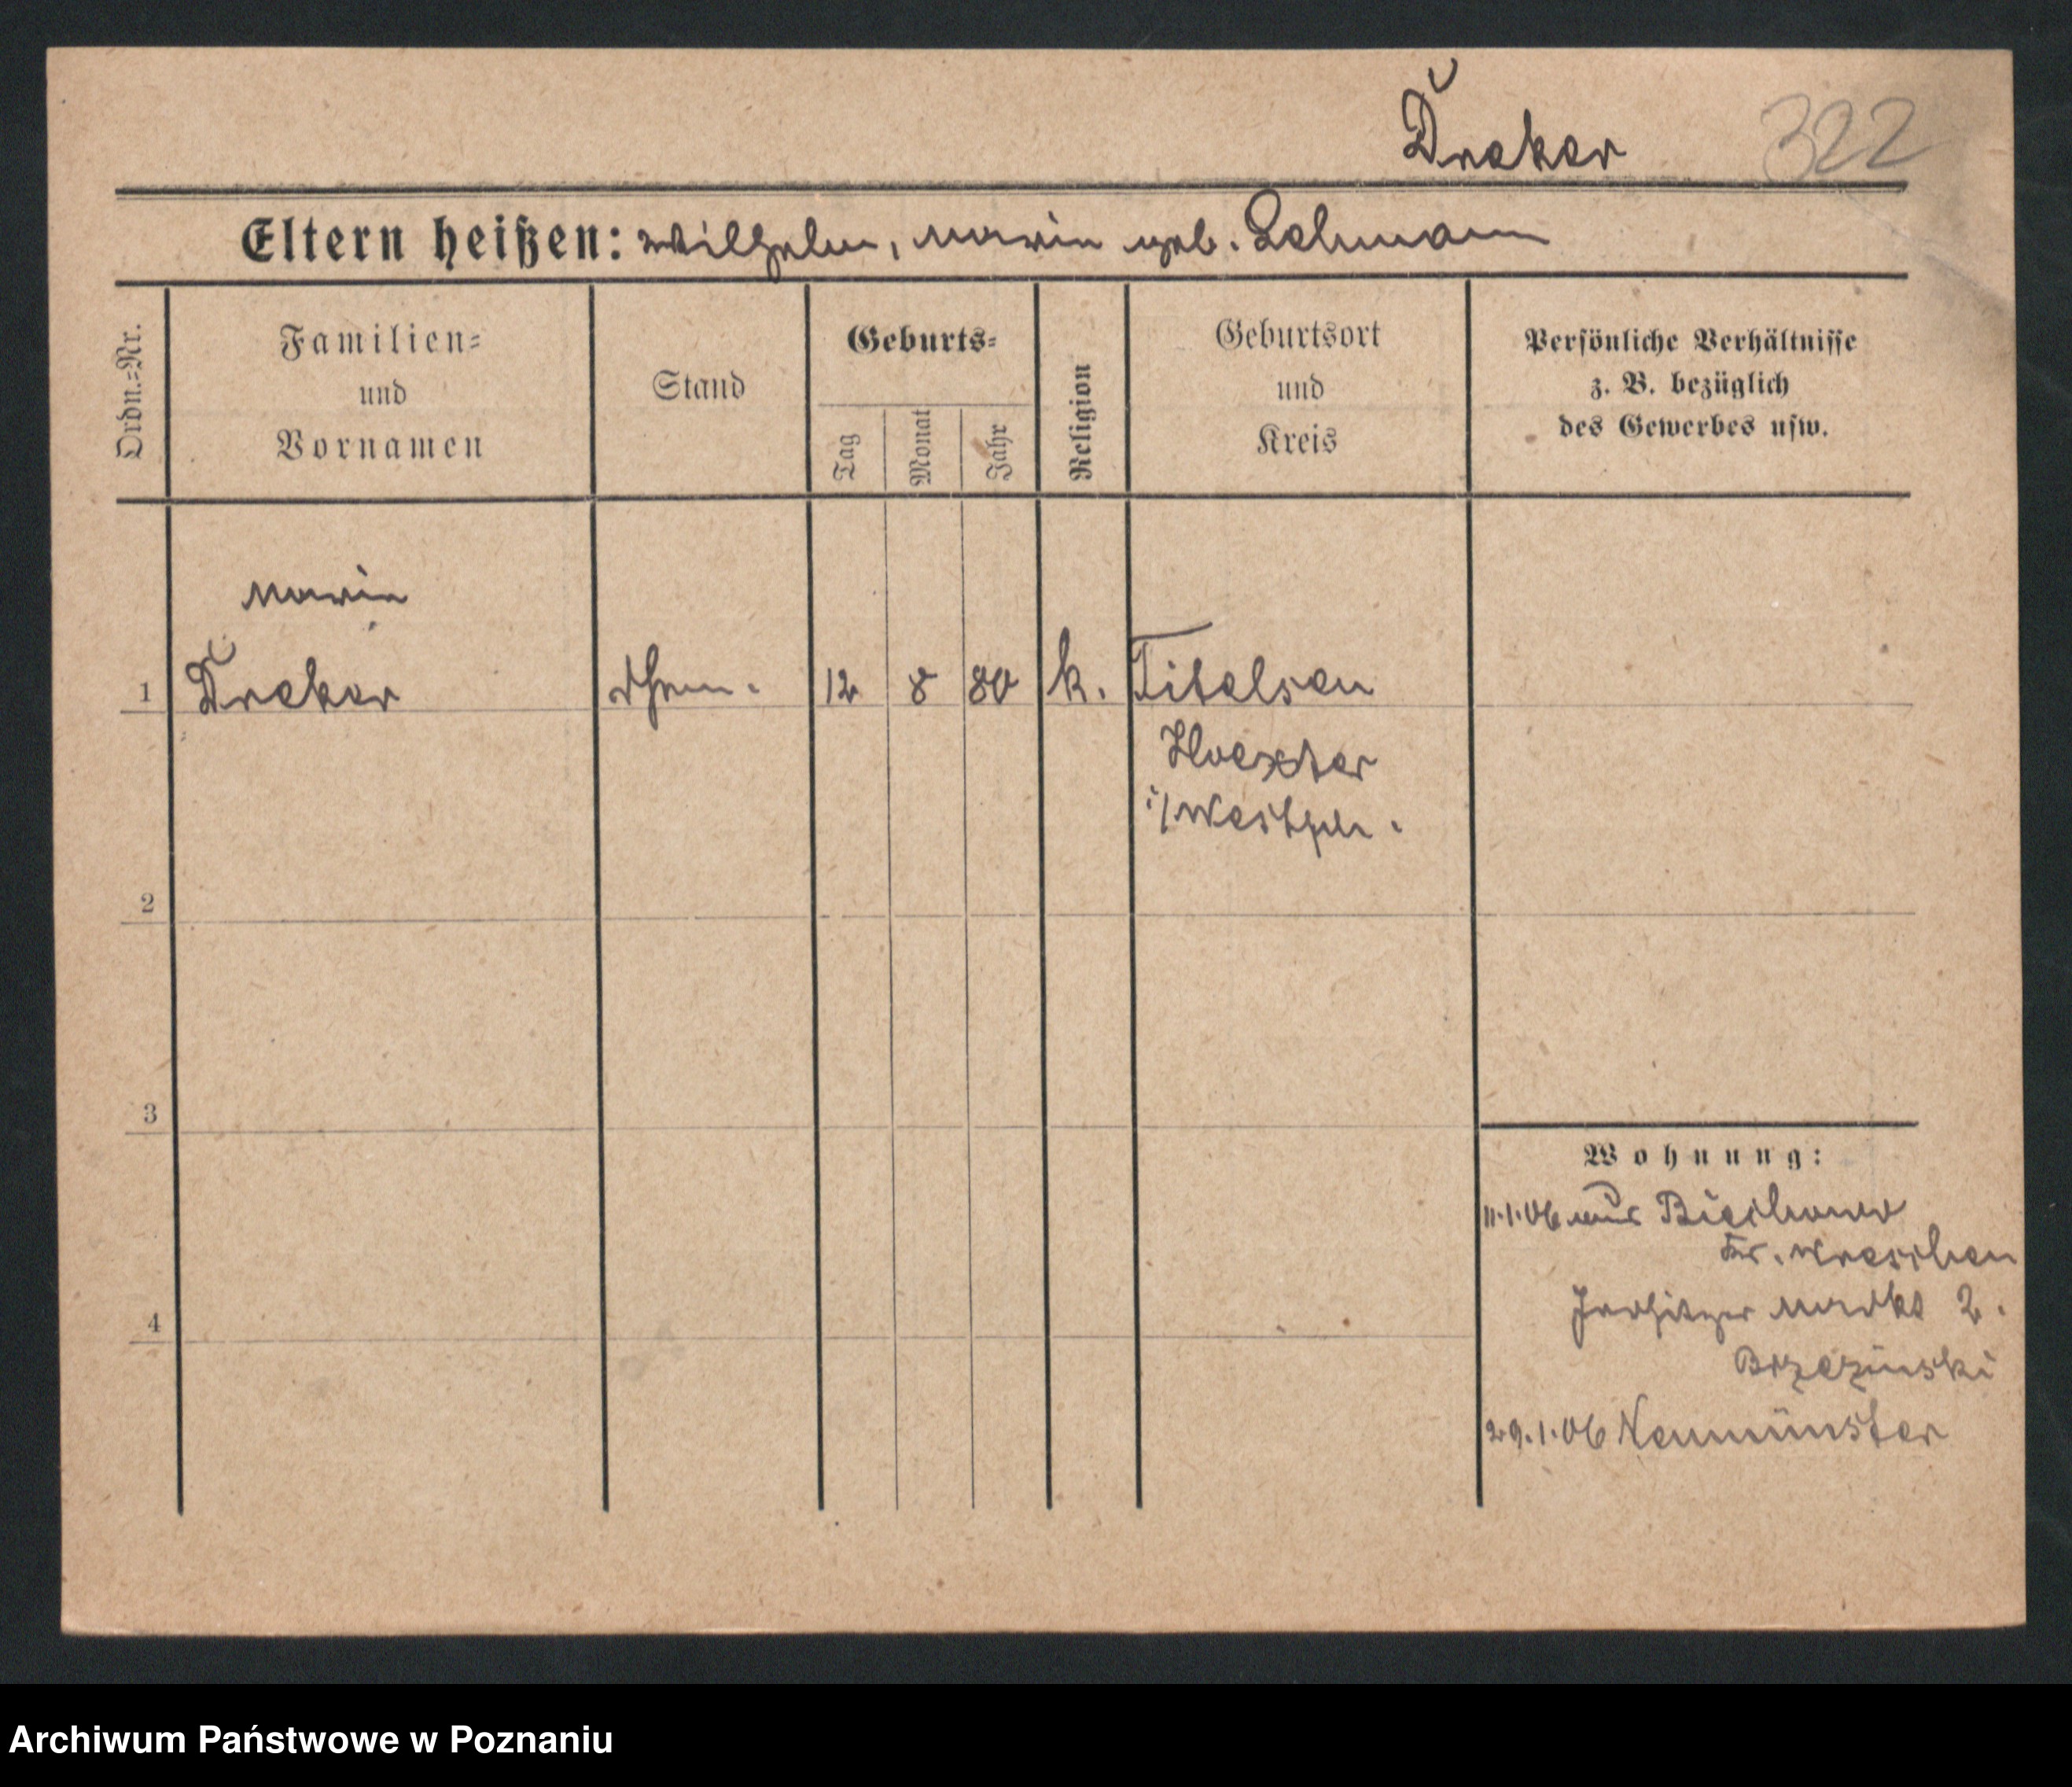 Dreker 322
Eltern heißen: Wilhelm, Marie geb. Lehmann
Ordn.-Nr.
Familien-
und
Vornamen
Stand
Geburts-
Tag
Monat
Jahr
Religion
Geburtsort
und
Kreis
Persönliche Verhältnisse
z. B. bezüglich
des Gewerbes usw.
Marie
1 Dreker 12 8 80 k. Titelsen
Hoexter
i/Westph.
2
3
4
Wohnung:
11.1.06 aus Biechowo
Kr. Wreschen
Markt 2.
Brzezinski
29.1.06 Neumünster
Archiwum Państwowe w Poznaniu